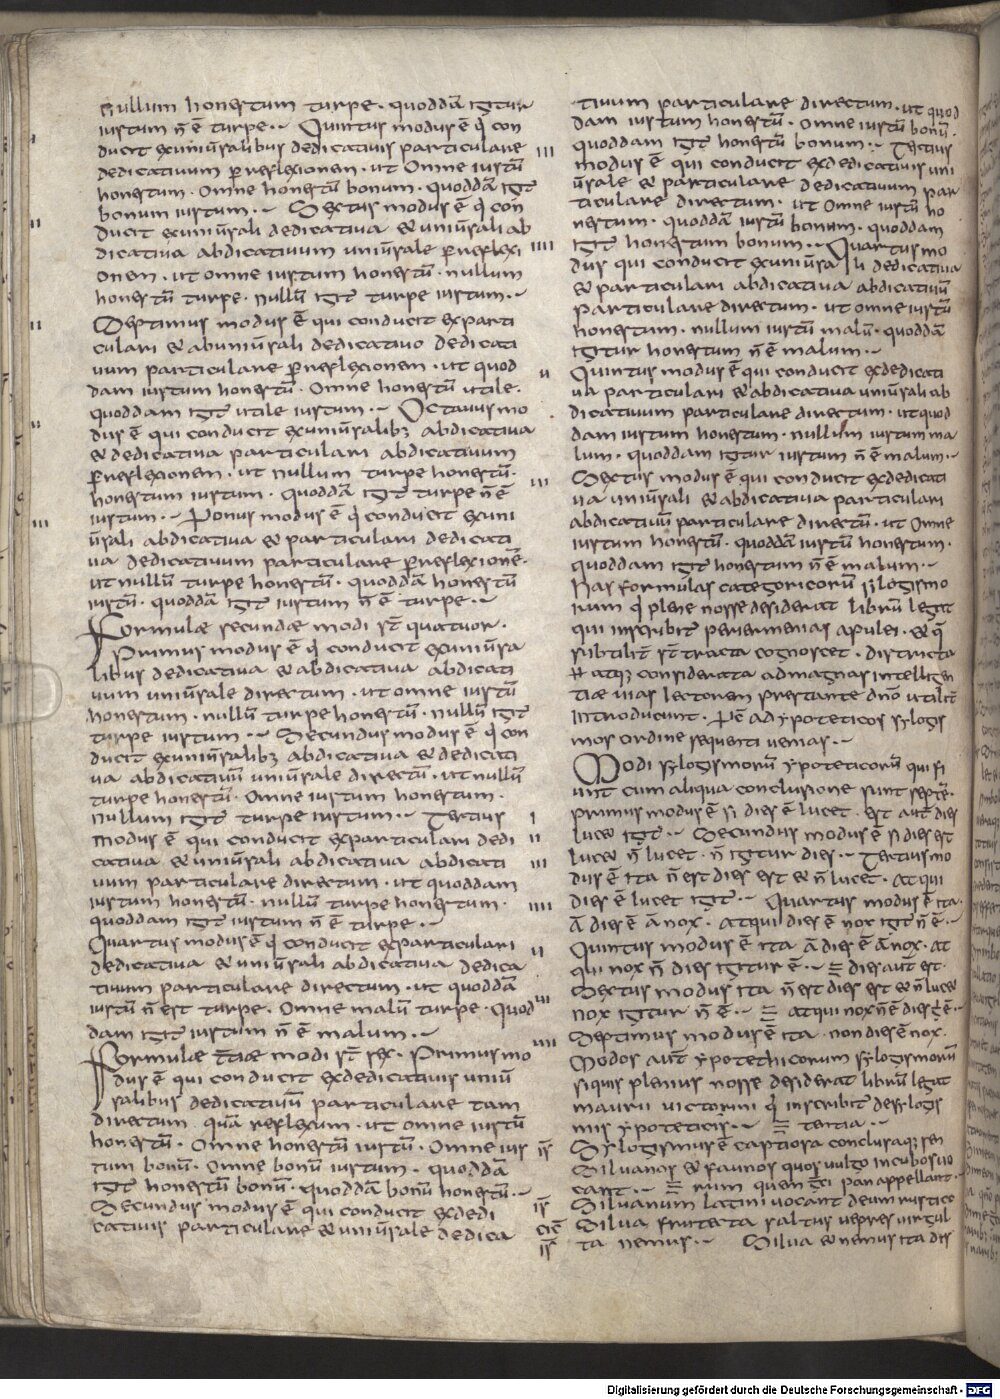 nullum honestum turpe. quoddā igitur
iustum n̄ ē turpe. Quintus modus ē q̇ con
ducit ex uniūsalibus dedicativis particulare
dedicativum p̱ reflexionem. ut Omne iustū
honestum. Omne honestū bonum. quoddā igit̄
bonum iustum. Sextus modus ē q̇ con
ducit ex uniūsali dedicativa & uniūsali ab
dicativa abdicativum uniūsale p̱ reflexi
onem. ut omne iustum honestū. nullum
honestū turpe. nullū igit̄ turpe iustum.
Septimus modus ē qui conducit ex parti
culari & ab uniūsali dedicativo dedicati
vum particulare p̱ reflexionem. ut quod
dam iustum honestū. Omne honestū utile.
quoddam igit̄ utile iustum. Octavus mo
dus ē qui conducit ex uniūsalib; abdicativa
& dedicativa particulari abdicativum
p̱ reflexionem. ut nullum turpe honestū.
honestum iustum. quoddā igit̄ turpe n̄ ē
iustum. Nonus modus ē q̇ conducit ex uni
ūsali abdicativa & particulari dedicati
va dedicativum particulare p̱ reflexionē.
ut nullū turpe honestū. quoddā honestū
iustū. quoddā igit̄ iustum n̄ ē turpe.
Formulae secundae modi st̄ quatuor.
Primus modus ē q̇ conducit ex uniūsa
libus dedicativa & abdicativa abdicati
vum uniūsale directum. ut omne iustū
honestum. nullū turpe honestū. nullū igit̄
turpe iustum. Secundus modus ē q̇ con
ducit ex uniūsalib; abdicativa & dedicati
va abdicativū uniūsale directū. ut nullū
turpe honestū. Omne iustum honestum.
nullum igit̄ turpe iustum. Tertius
modus ē qui conducit ex particulari dedi
cativa & uniūsali abdicativa abdicati
vum particulare directum. ut quoddam
iustum honestū. nullū turpe honestum.
quoddam igit̄ iustum n̄ ē turpe.
Quartus modus ē q̇ conducit ex particulari
dedicativa & uniūsali abdicativa dedica
tivum particulare directum. ut quoddā
iustū n̄ est turpe. Omne malū turpe. Quod
dam igit̄ iustum n̄ ē malum.
Formulae t̄tiae modi st̄ sex. Primus mo
dus ē qui conducit ex dedicativis univ̄
salibus dedicativū particulare tam
directum quā reflexum. ut omne iustū
honestū. Omne honestū iustū. Omne ius
tum bonū. Omne bonū iustum. quoddā
igit̄ honestū bonū. quoddā bonū honestū.
Secundus modus ē qui conducit ex dedi
cativis particulare & uniūsale dedica
tivum particulare directum. ut quod
dam iustum honestū. Omne iustū bonū.
quoddam igit̄ honestū bonum. Tertius
modus ē qui conducit ex dedicativis uni
ūsale & particulare dedicativum par
ticulare directum. ut Omne iustū ho
nestum. quoddā iustū bonum. quoddam
igit̄ honestum bonum. Quartus mo
dus qui conducit ex uniūsali dedicativa
& particulari abdicativa abdicativū
particulare directum. ut omne iustū
honestum. nullum iustū malū. quoddā
igitur honestum n̄ ē malum.
Quintus modus ē qui conducit ex dedicati
va particulari & abdicativa uniūsali ab
dicativum particulare directum. ut quod
dam iustum honestum. nullum iustum ma
lum. quoddam igitur iustum n̄ ē malum.
Sextus modus ē qui conducit ex dedicati
va uniūsali & abdicativa particulari
abdicativū particulare directū. ut Omne
iustum honestū. quoddā iustū honestum.
quoddam igit̄ honestum n̄ ē malum.
Has formulas categoricorū syllogismo
rum q̇ plene nosse desiderat librū legat
qui inscribit̄ periermenias apulei. & q̄
subtiliꝰ st̄ tracta cognoscet. districta
atq; considerata ad magnas intelligen
tiae vias lectorem prestante dn̄o utilit̄
introducunt. Nc̄ ad ypoteticos syllogis
mos ordine sequenti venias.
Modi syllogismorū ypoteticorū qui fi
unt cum aliqua conclusione sunt septē.
primus modus ē si dies ē lucet. est aut̄ dies
lucet igit̄. Secundus modus ē si dies est
lucet n̄ lucet. n̄ igitur dies. Tertius mo
dus ē ita n̄ est dies est & n̄ lucet. at qui
dies ē lucet igit̄. Quartus modus ē ita.
ā dies ē ā nox. at qui dies ē nox igit̄ n̄ ē.
Quintus modus ē ita ā dies ē ā nox. at
qui nox n̄ dies igitur ē. dies aut̄ est.
Sextus modus ita n̄ est dies est & n̄ lucet
nox igitur n̄ ē. at qui nox n̄ ē dies g̊ ē.
Septimus modus ē ita. non dies ē nox.
Modos aut̄ ypotethicorum syllogismorū
siquis plenius nosse desiderat librū legat
maurii victorini q̇ inscribit̄ de syllogis
mis ypoteticis. tertia.
Syllogismus ē captiosa conclusaq; sen
Silvanos & faunos quos vulgo incubos vo
cant. rum quem gc̄i pan appellant.
Silvanum latini vocant deum rusticо
Silva fruteta saltus vepres virgul
ta nemus. Silva & nemus ita dis
Digitalisierung gefördert durch die Deutsche Forschungsgemeinschaft - DFG